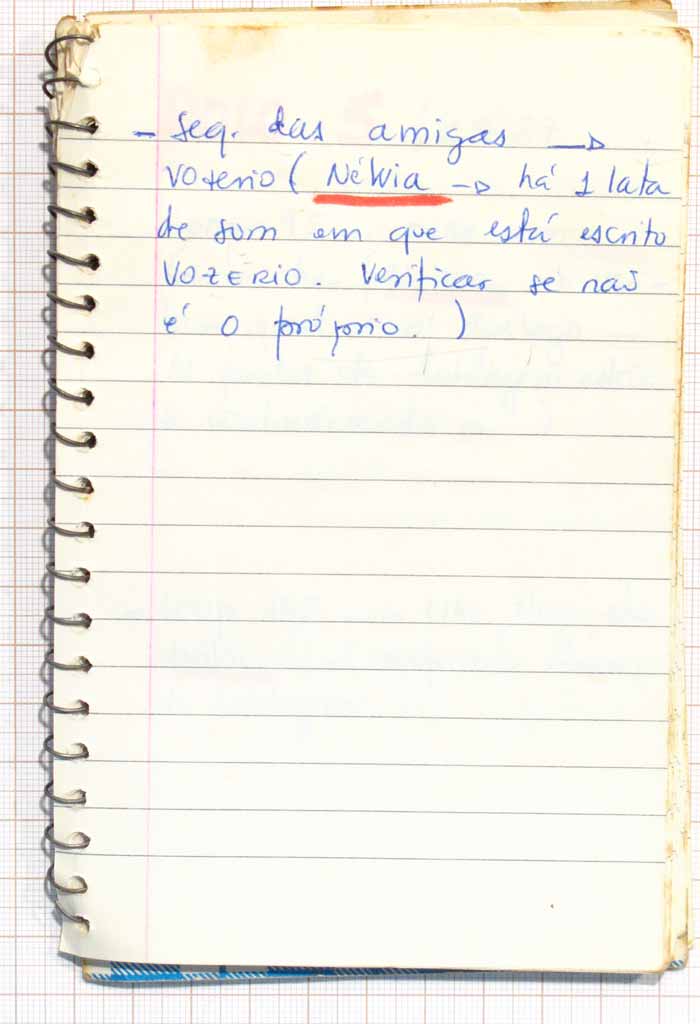 - Seq. das amigas →
vozerio ( Nélvia → há 1 lata
de som em que está escrito
VOZERIO. Verificar se não
é o próprio. )